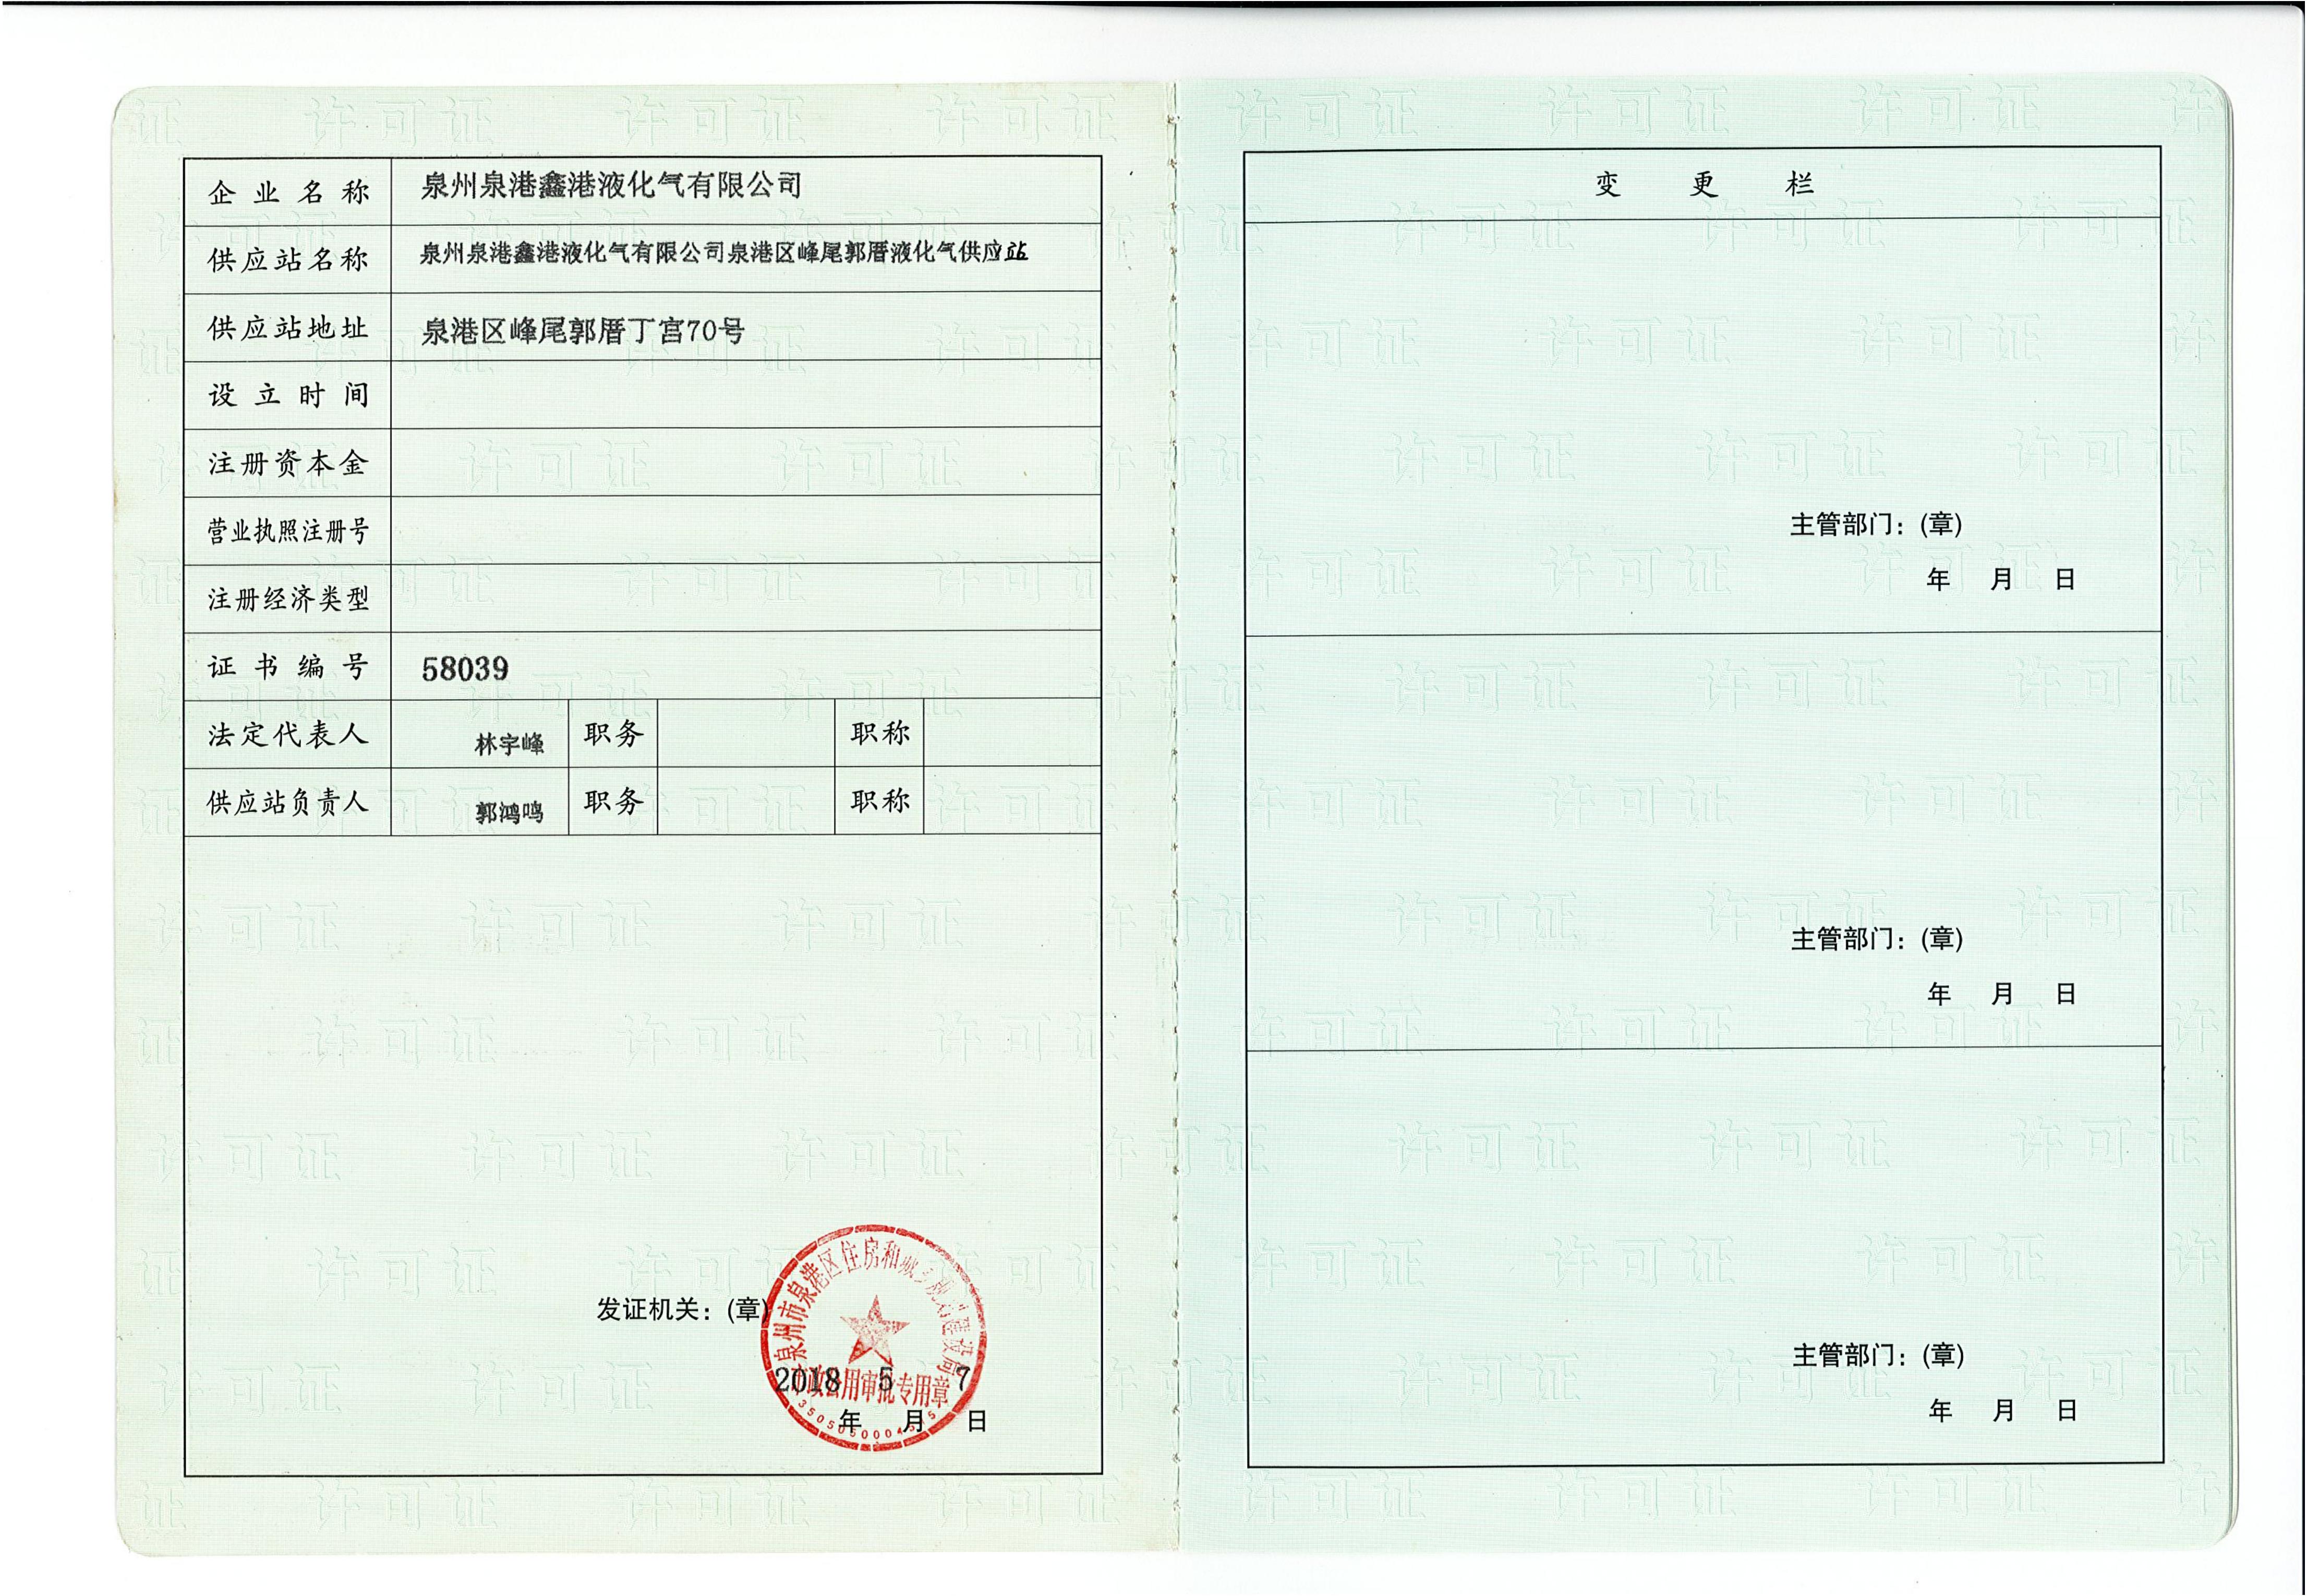 企业名称 泉州泉港鑫港液化气有限公司
供应站名称 泉州泉港鑫港液化气有限公司泉港区峰尾郭厝液化气供应站
供应站地址 泉港区峰尾郭厝丁宫70号
设立时间
注册资本金
营业执照注册号
注册经济类型
证书编号 58039
法定代表人 林宇峰 职务 职称
供应站负责人 郭鸿鸣 职务 职称
发证机关：(章)
泉州市泉港区住房和城乡规划建设局
市政公用审批专用章
2018 5 7
年 月 日
变更栏
主管部门：(章)
年 月 日
主管部门：(章)
年 月 日
主管部门：(章)
年 月 日
许可证